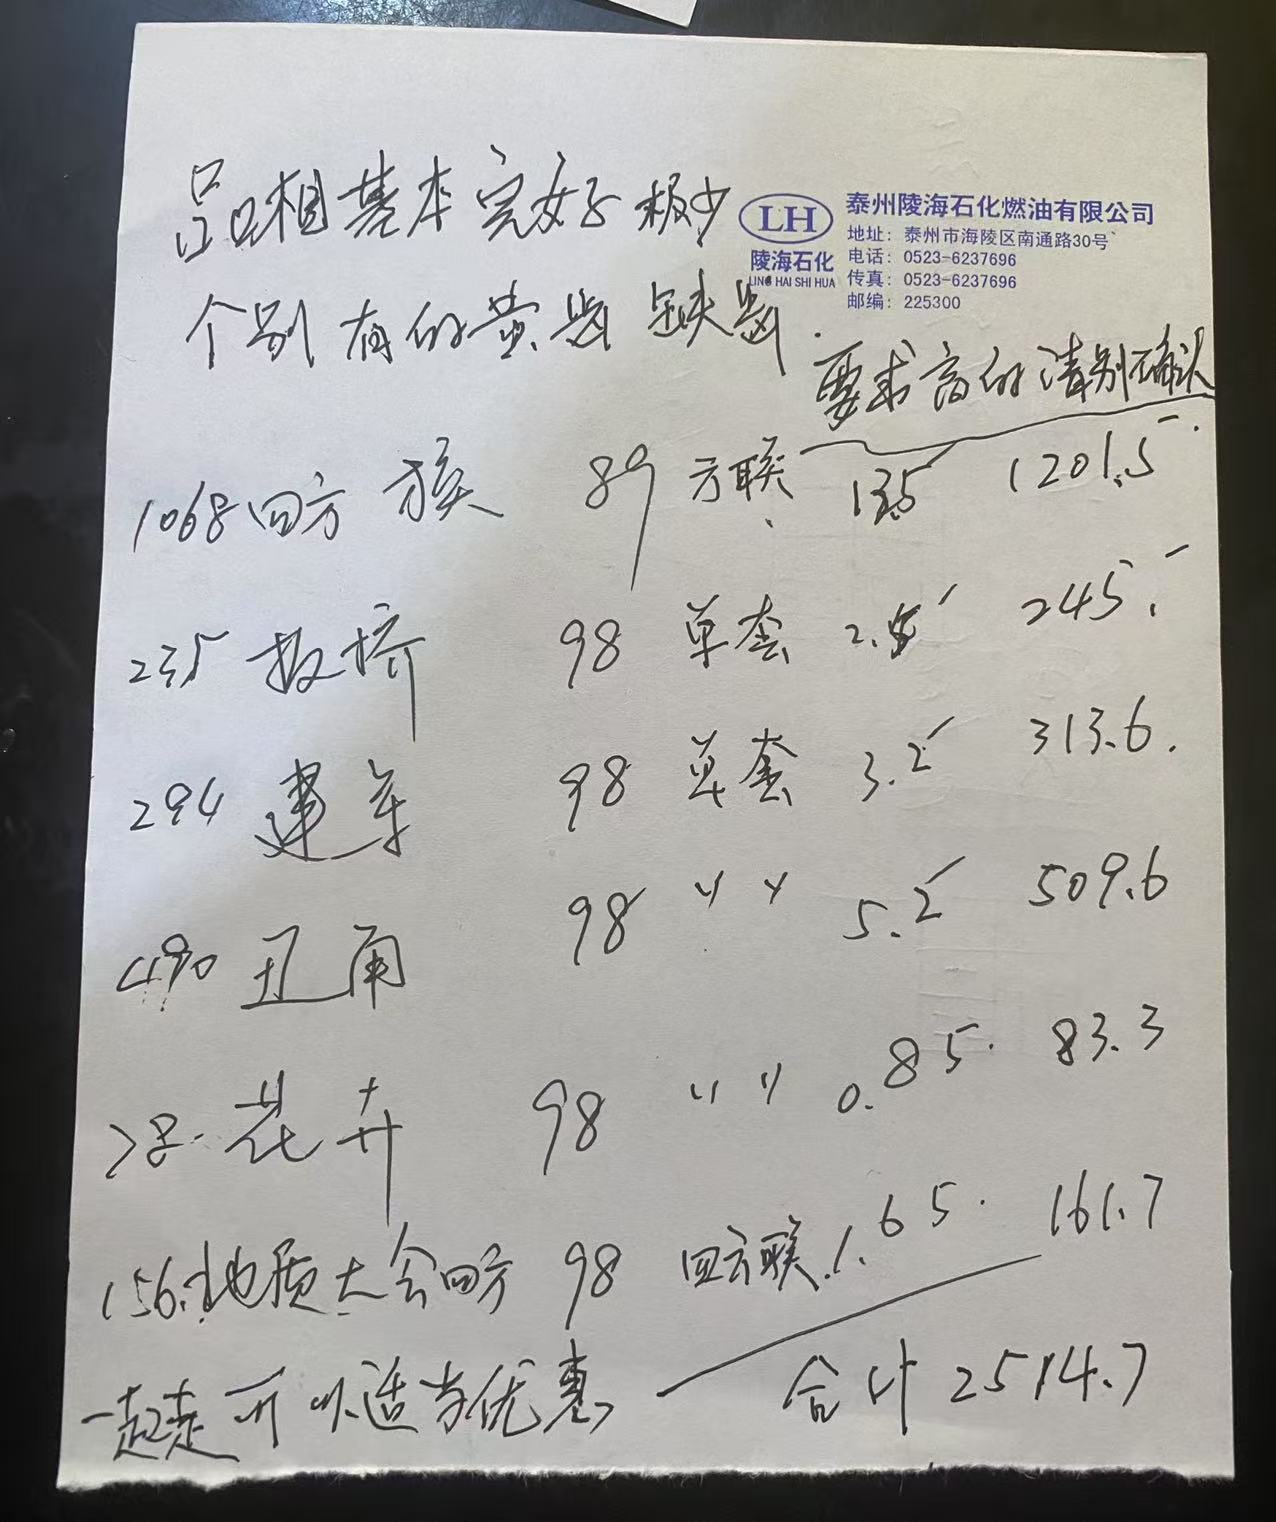 品相基本完好 极少
LH
陵海石化
LING HAI SHI HUA
泰州陵海石化燃油有限公司
地址：泰州市海陵区南通路30号
电话：0523-6237696
传真：0523-6237696
邮编：225300
个别有的黄齿 缺齿.
要求高的请别确认
1068 四方 族 89 方联 13.5 1201.5
235 拔桥 98 单套 2.5 245.
294 建军 98 单套 3.2 313.6.
490 丑角 98 〃 〃 5.2 509.6
78. 花卉 98 〃 〃 0.85. 83.3
156. 地质大会四方 98 四方联 1.65. 161.7
一起走可以适当优惠 合计 2514.7